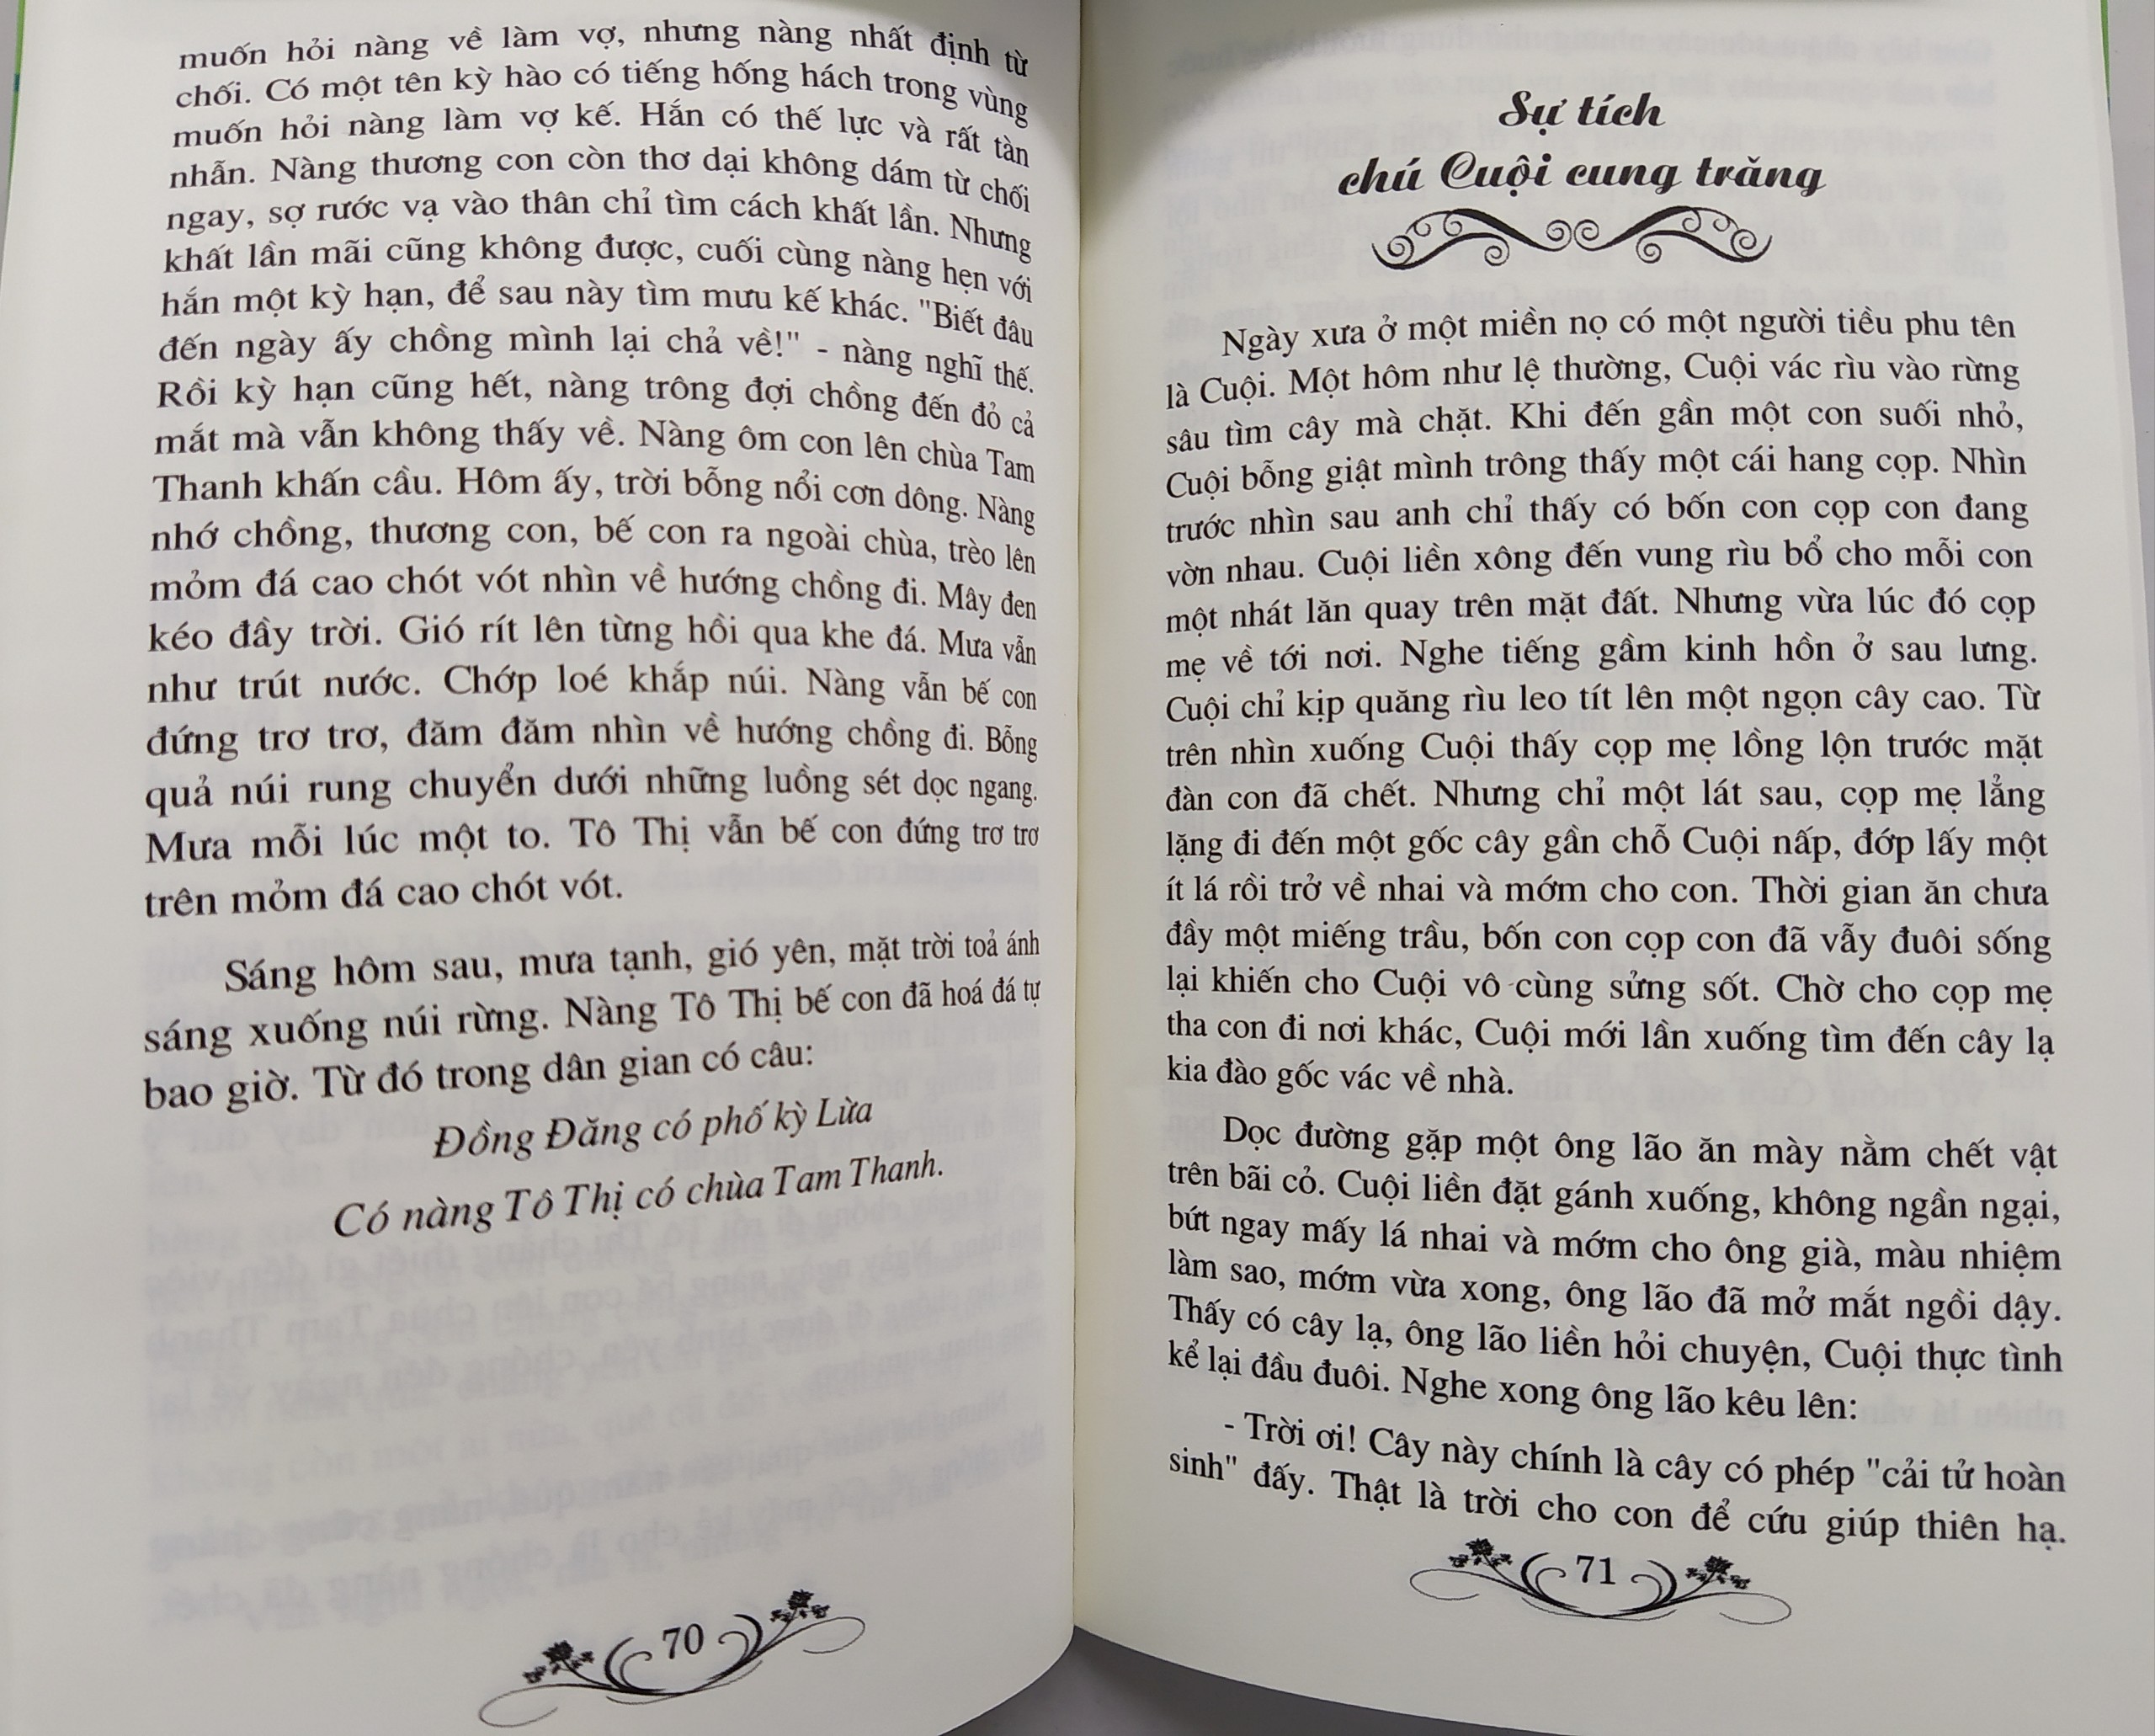 muốn hỏi nàng về làm vợ, nhưng nàng nhất định từ
chối. Có một tên kỳ hào có tiếng hống hách trong vùng
muốn hỏi nàng làm vợ kế. Hắn có thế lực và rất tàn
nhẫn. Nàng thương con còn thơ dại không dám từ chối
ngay, sợ rước vạ vào thân chỉ tìm cách khất lần. Nhưng
khất lần mãi cũng không được, cuối cùng nàng hẹn với
hắn một kỳ hạn, để sau này tìm mưu kế khác. "Biết đâu
đến ngày ấy chồng mình lại chả về!" - nàng nghĩ thế.
Rồi kỳ hạn cũng hết, nàng trông đợi chồng đến đỏ cả
mắt mà vẫn không thấy về. Nàng ôm con lên chùa Tam
Thanh khấn cầu. Hôm ấy, trời bỗng nổi cơn dông. Nàng
nhớ chồng, thương con, bế con ra ngoài chùa, trèo lên
mỏm đá cao chót vót nhìn về hướng chồng đi. Mây đen
kéo đầy trời. Gió rít lên từng hồi qua khe đá. Mưa vẫn
như trút nước. Chớp loé khắp núi. Nàng vẫn bế con
đứng trơ trơ, đăm đăm nhìn về hướng chồng đi. Bỗng
quả núi rung chuyển dưới những luồng sét dọc ngang.
Mưa mỗi lúc một to. Tô Thị vẫn bế con đứng trơ trơ
trên mỏm đá cao chót vót.
Sáng hôm sau, mưa tạnh, gió yên, mặt trời toả ánh
sáng xuống núi rừng. Nàng Tô Thị bế con đã hoá đá tự
bao giờ. Từ đó trong dân gian có câu:
Đồng Đăng có phố kỳ Lừa
Có nàng Tô Thị có chùa Tam Thanh.
70
Sự tích
chú Cuội cung trăng
Ngày xưa ở một miền nọ có một người tiều phu tên
là Cuội. Một hôm như lệ thường, Cuội vác rìu vào rừng
sâu tìm cây mà chặt. Khi đến gần một con suối nhỏ,
Cuội bỗng giật mình trông thấy một cái hang cọp. Nhìn
trước nhìn sau anh chỉ thấy có bốn con cọp con đang
vờn nhau. Cuội liền xông đến vung rìu bổ cho mỗi con
một nhát lăn quay trên mặt đất. Nhưng vừa lúc đó cọp
mẹ về tới nơi. Nghe tiếng gầm kinh hồn ở sau lưng.
Cuội chỉ kịp quăng rìu leo tít lên một ngọn cây cao. Từ
trên nhìn xuống Cuội thấy cọp mẹ lồng lộn trước mặt
đàn con đã chết. Nhưng chỉ một lát sau, cọp mẹ lẳng
lặng đi đến một gốc cây gần chỗ Cuội nấp, đớp lấy một
ít lá rồi trở về nhai và mớm cho con. Thời gian ăn chưa
đầy một miếng trầu, bốn con cọp con đã vẫy đuôi sống
lại khiến cho Cuội vô cùng sửng sốt. Chờ cho cọp mẹ
tha con đi nơi khác, Cuội mới lần xuống tìm đến cây lạ
kia đào gốc vác về nhà.
Dọc đường gặp một ông lão ăn mày nằm chết vật
trên bãi cỏ. Cuội liền đặt gánh xuống, không ngần ngại,
bứt ngay mấy lá nhai và mớm cho ông già, màu nhiệm
làm sao, mớm vừa xong, ông lão đã mở mắt ngồi dậy.
Thấy có cây lạ, ông lão liền hỏi chuyện, Cuội thực tình
kể lại đầu đuôi. Nghe xong ông lão kêu lên:
- Trời ơi! Cây này chính là cây có phép "cải tử hoàn
sinh" đấy. Thật là trời cho con để cứu giúp thiên hạ.
71